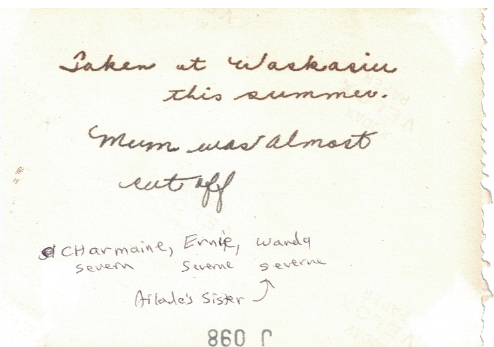 Taken at Waskasiu
this summer.
Mum was almost
cut off
CHarmaine, Ernie, Wanda
severn Severne severne
Ailade's Sister
860 J